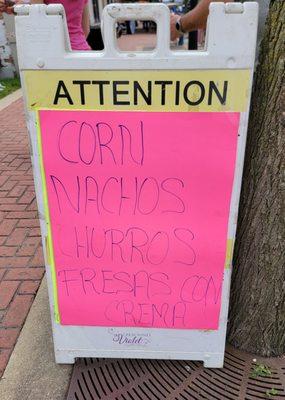 ATTENTION
CORN
NACHOS
CHURROS
FRESAS CON
CREMA
Violet